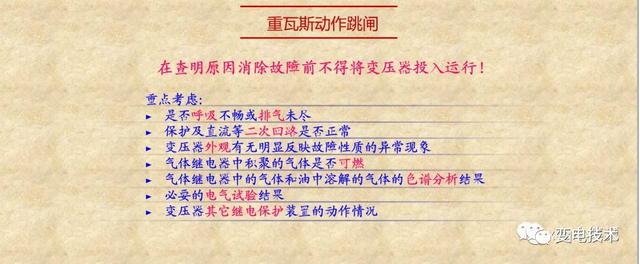 重瓦斯动作跳闸
在查明原因消除故障前不得将变压器投入运行！
重点考虑:
► 是否呼吸不畅或排气未尽
► 保护及直流等二次回路是否正常
► 变压器外观有无明显反映故障性质的异常现象
► 气体继电器中积聚的气体是否可燃
► 气体继电器中的气体和油中溶解的气体的色谱分析结果
► 必要的电气试验结果
► 变压器其它继电保护装置的动作情况
变电技术